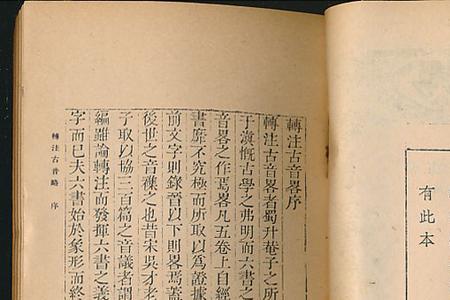 有此本
轉注古音畧序
轉注古音畧者蜀升菴子之所
于滇慨古學之弗明而六書之
音畧之作焉畧凡五卷上自經
書靡不究極而所取以為證據
前文字則錄晉以下則畧焉蓋
後世之音襍之也昔宋吳才老
子取以協三百篇之音議者謂
編雖論轉注而發揮六書之義
字而已夫六書始於象形而終
轉注古音略 序